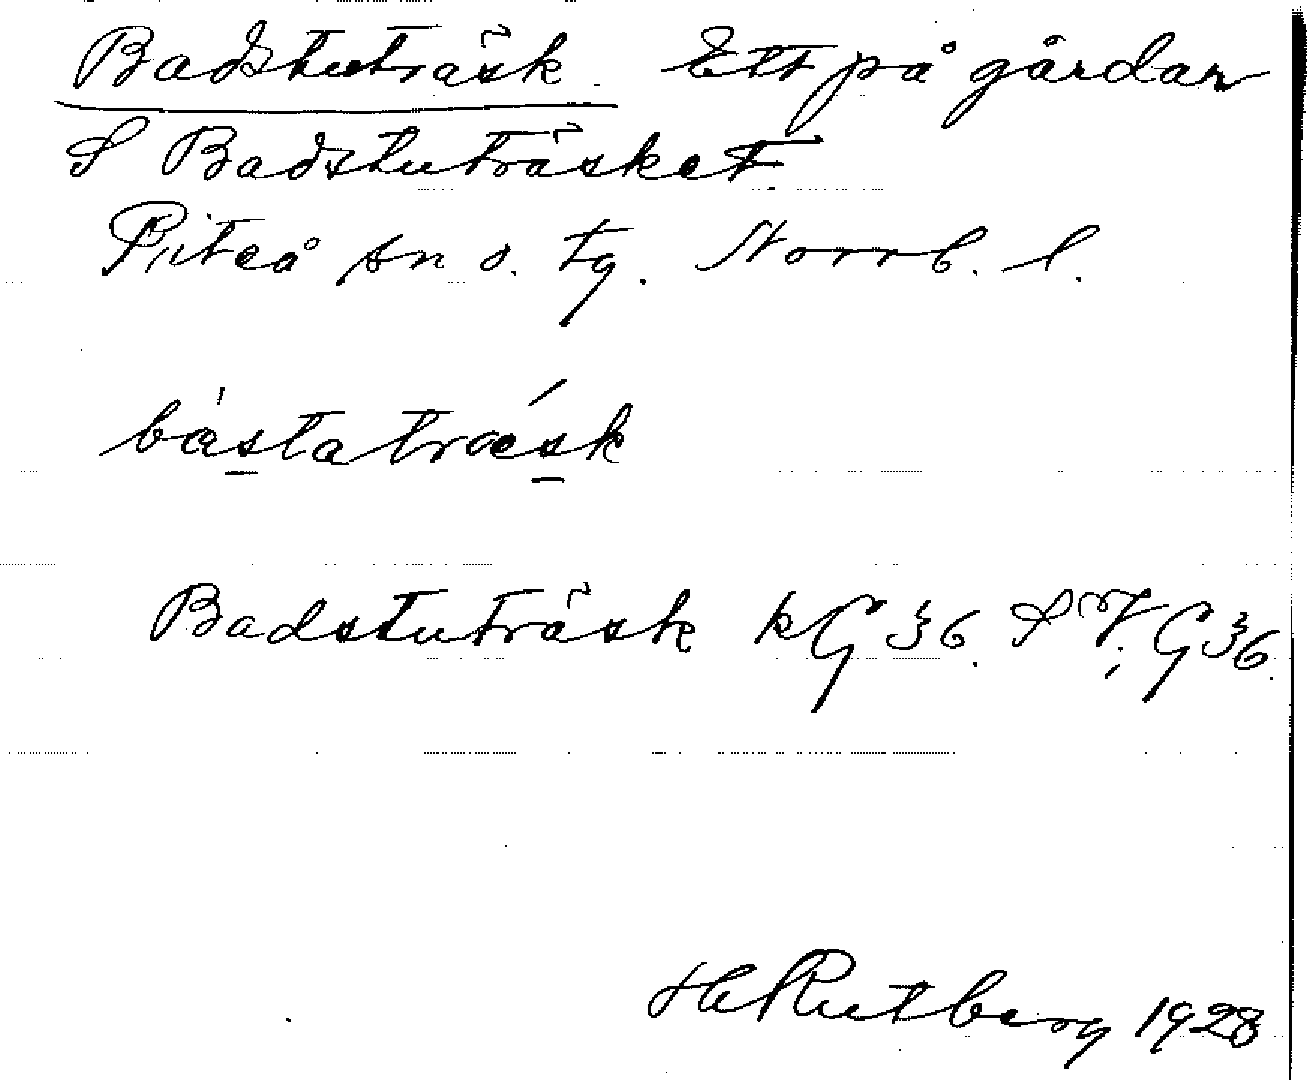 Badstuträsk. Ett på gårdar
S Badstuträsket.
Piteå sn o. tg. Norrb. l.
bástatrǽsk
Badstuträsk kG 36. S V; G 36.
H Rutberg 1928